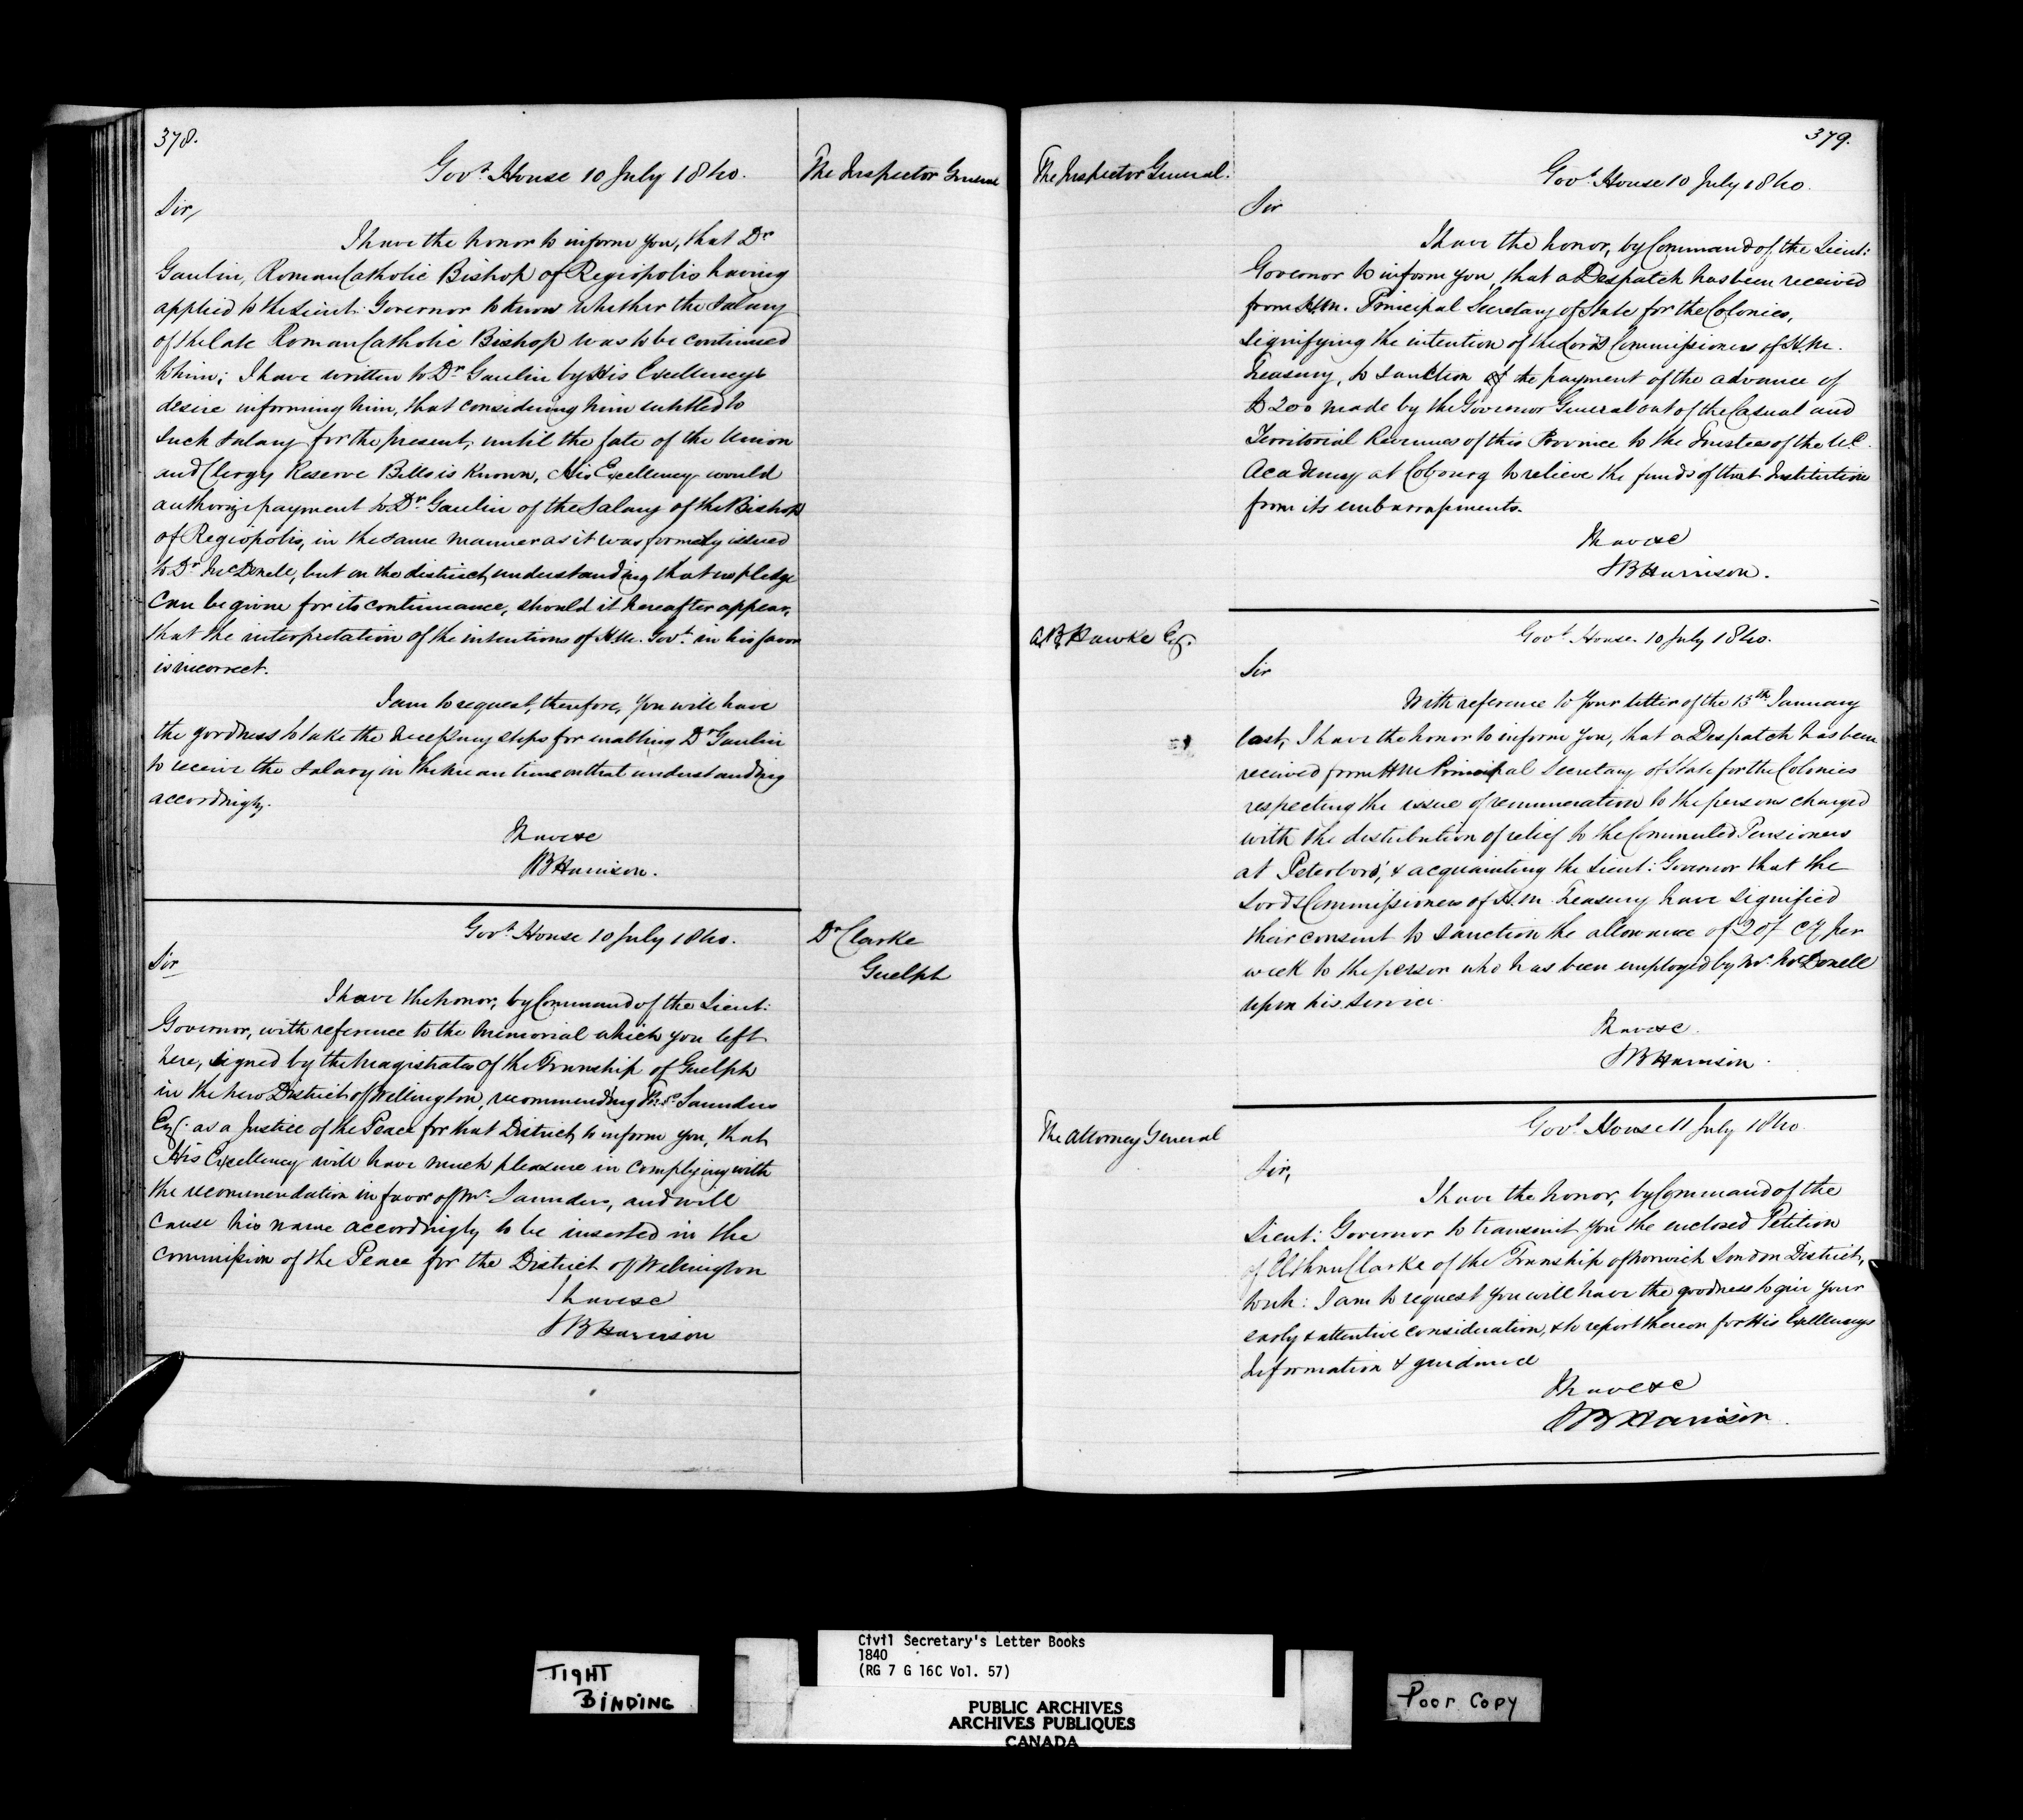 378.
The Inspector General
Govt. House 10 July 1840.
Sir,
I have the honor to inform you, that Dr
Gaulin, Roman Catholic Bishop of Regiopolis having
applied to the Lieut: Governor to know whether the Salary
of the late Roman Catholic Bishop was to be continued
to him; I have written to Dr Gaulin by His Excellency's
desire informing him, that considering him entitled to
such salary for the present, until the fate of the Union
and Clergy Reserve Bills is known, His Excellency would
authorize payment to Dr Gaulin of the Salary of the Bishop
of Regiopolis, in the same manner as it was formerly issued
to Dr McDonell, but on the distinct understanding that no pledge
can be given for its continuance, should it hereafter appear,
that the interpretation of the intentions of H.M. Govt. in his favor
is incorrect.
I am to request, therefore, you will have
the goodness to take the necessary steps for enabling Dr Gaulin
to receive the salary in the mean time on that understanding
accordingly.
I have &c
SB Harrison.
Dr Clarke
Guelph
Govt. House 10 July 1840.
Sir
I have the honor, by Command of the Lieut:
Governor, with reference to the memorial which you left
here, signed by the Magistrates of the Township of Guelph
in the new District of Wellington, recommending Thos. Saunders
Esq. as a Justice of the Peace for that District, to inform you, that
His Excellency will have much pleasure in complying with
the recommendation in favor of Mr. Saunders, and will
cause his name accordingly to be inserted in the
commission of the Peace for the District of Wellington
I have &c
SB Harrison
379.
The Inspector General.
Govt. House 10 July 1840.
Sir
I have the honor, by Command of the Lieut:
Governor to inform you, that a Despatch has been received
from H.M. Principal Secretary of State for the Colonies,
signifying the intention of the Lords Commissioners of H.M.
Treasury, to sanction of the payment of the advance of
£200 made by the Governor General out of the Casual and
Territorial Revenues of this Province to the Trustees of the U.C.
Academy at Cobourg to relieve the funds of that Institution
from its embarrassments.
I have &c
SB Harrison.
AB Hawke Esq.
Govt. House. 10 July 1840.
Sir
With reference to your letter of the 15th January
last, I have the honor to inform you, that a Despatch has been
received from HM Principal Secretary of State for the Colonies
respecting the issue of remuneration to the persons charged
with the distribution of relief to the Commuted Pensioners
at Peterboro', & acquainting the Lieut: Governor that the
Lords Commissioners of H.M. Treasury have signified
their consent to sanction the allowance of 20/ Cy per
week to the person who has been employed by Mr. McDonell
upon his service.
I have &c.
SB Harrison.
The Attorney General
Govt. House 11 July 1840
Sir,
I have the honor, by Command of the
Lieut: Governor to transmit you the enclosed Petition
of Clarke of the Township of Norwich London District,
to wh: I am to request you will have the goodness to give your
early & attentive consideration, & to report thereon for His Excellency's
information & guidance
I have &c
SB Harrison.
TIGHT
BINDING
Civil Secretary's Letter Books
1840
(RG 7 G 16C Vol. 57)
PUBLIC ARCHIVES
ARCHIVES PUBLIQUES
CANADA
Poor Copy